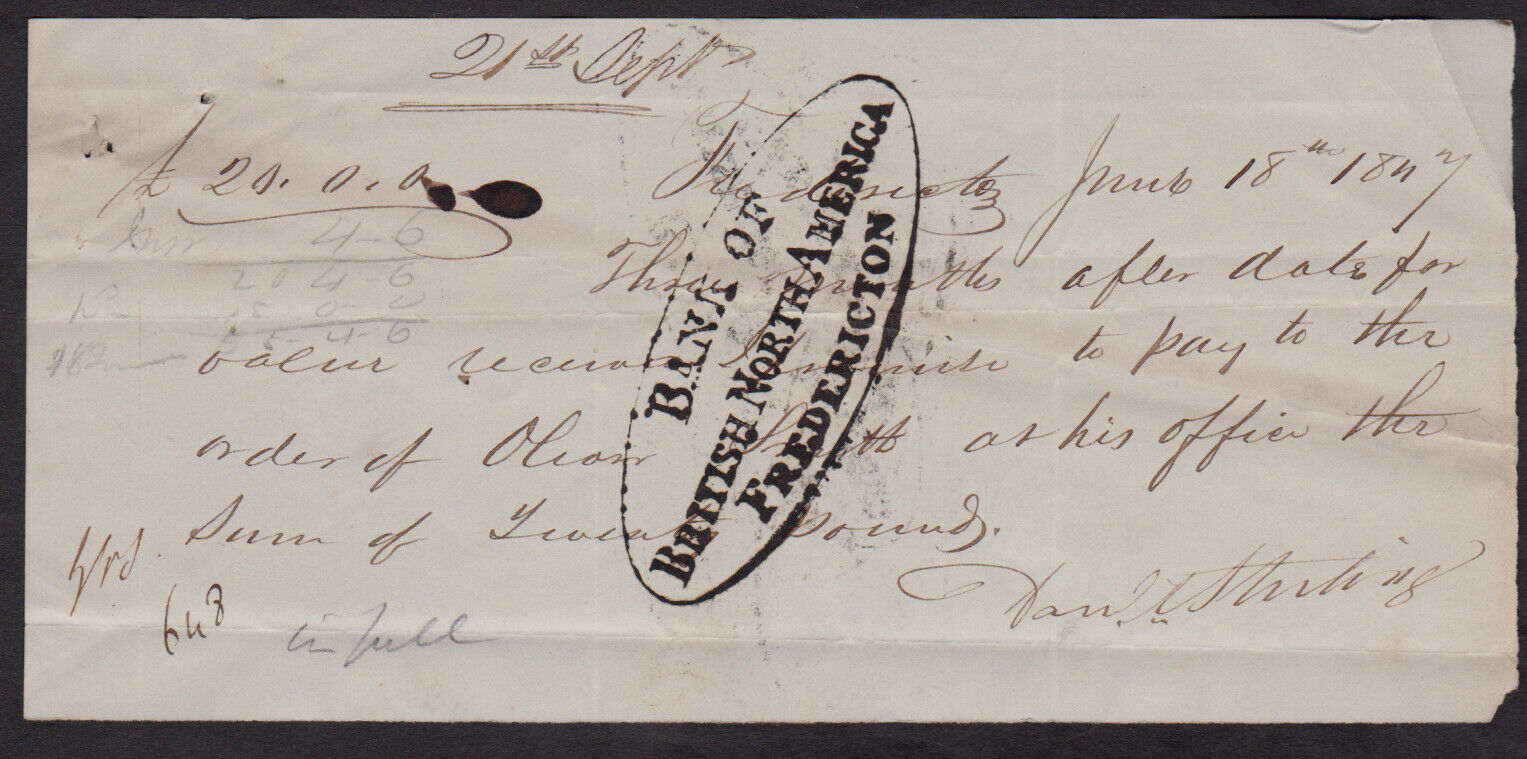 21st Sept
£ 20. 0. 0 Fredericton June 18th 1847
4-6
20 4-6
4-6
Three months after date for
value received I promise to pay to the
order of Oliver Smith at his office the
Sum of Twenty pounds.
Danl Sterling
648
in full
BANK OF
BRITISH NORTH AMERICA
FREDERICTON